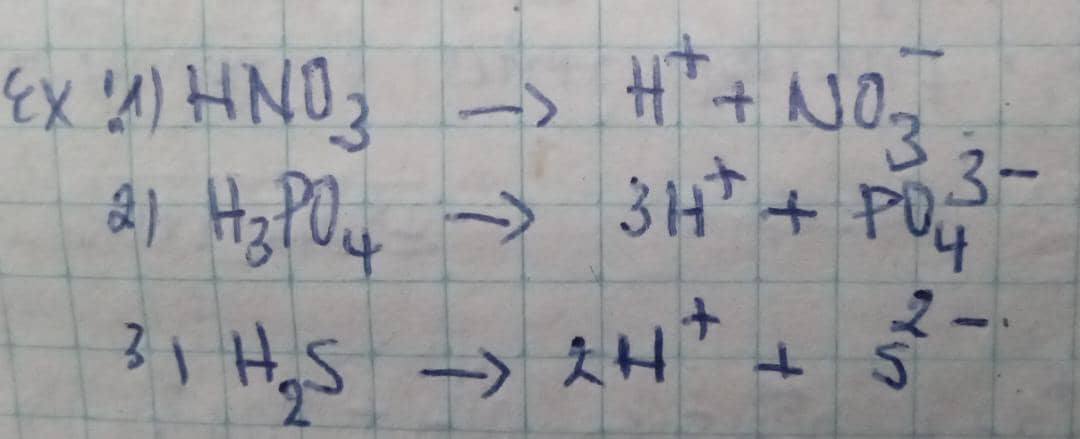 Ex: 1) HNO₃ → H⁺ + NO₃⁻
2) H₃PO₄ → 3H⁺ + PO₄³⁻
3) H₂S → 2H⁺ + S²⁻